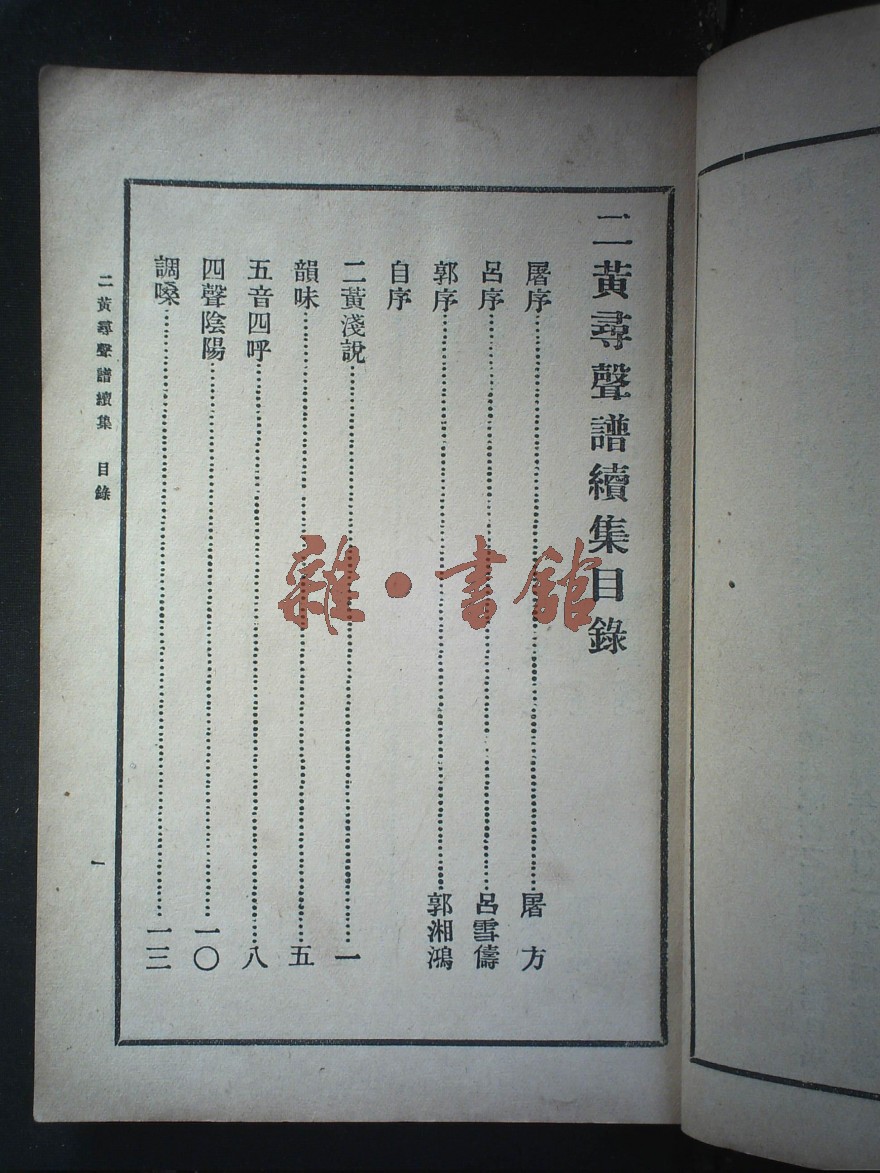 二黃尋聲譜續集目錄
屠序……屠方
呂序……呂雪儔
郭序……郭湘鴻
自序
二黃淺說……一
韻味……五
五音四呼……八
四聲陰陽……一〇
調嗓……一三
二黃尋聲譜續集 目錄 一
雜·書館